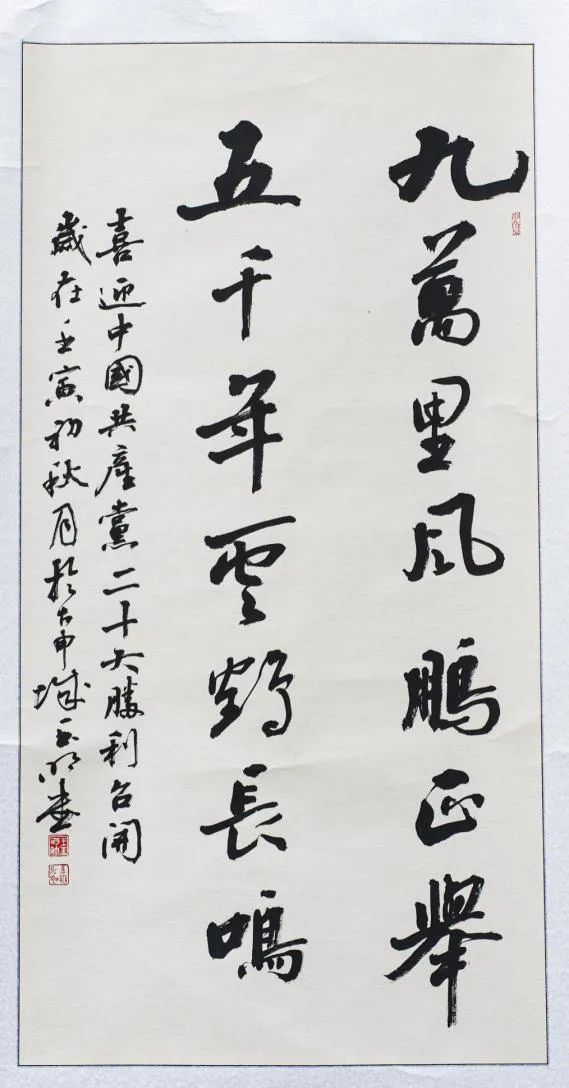 九萬里風鵬正舉
五千年雲鶴長鳴
喜迎中國共產黨二十大勝利召開
歲在壬寅初秋月於古申城玉明書